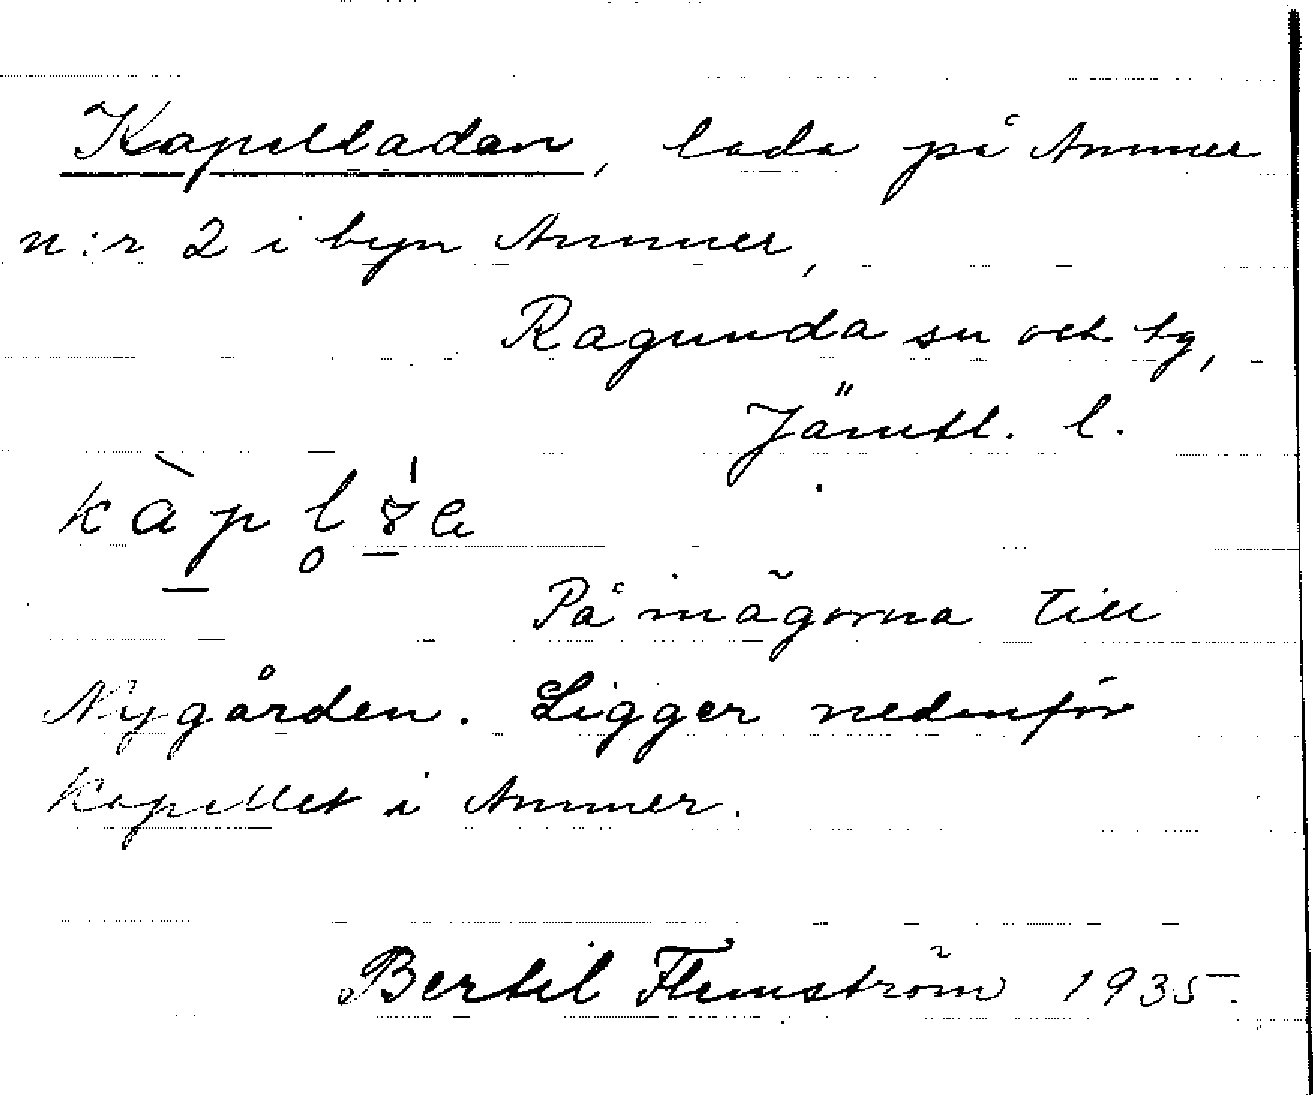 Kapelladan, lada på Ammer
n:r 2 i byn Ammer,
Ragunda sn och tg,
Jämtl. l.
På inägorna till
Nygården. Ligger nedanför
Kapellet i Ammer.
Bertil Flemström 1935.